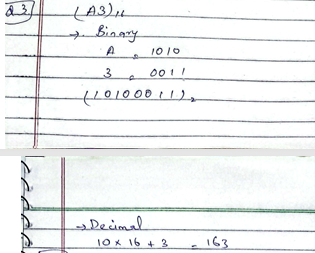 Q.3
(A3)16
→ Binary
A = 1010
3 = 0011
(10100011)2
→ Decimal
10 × 16 + 3 = 163